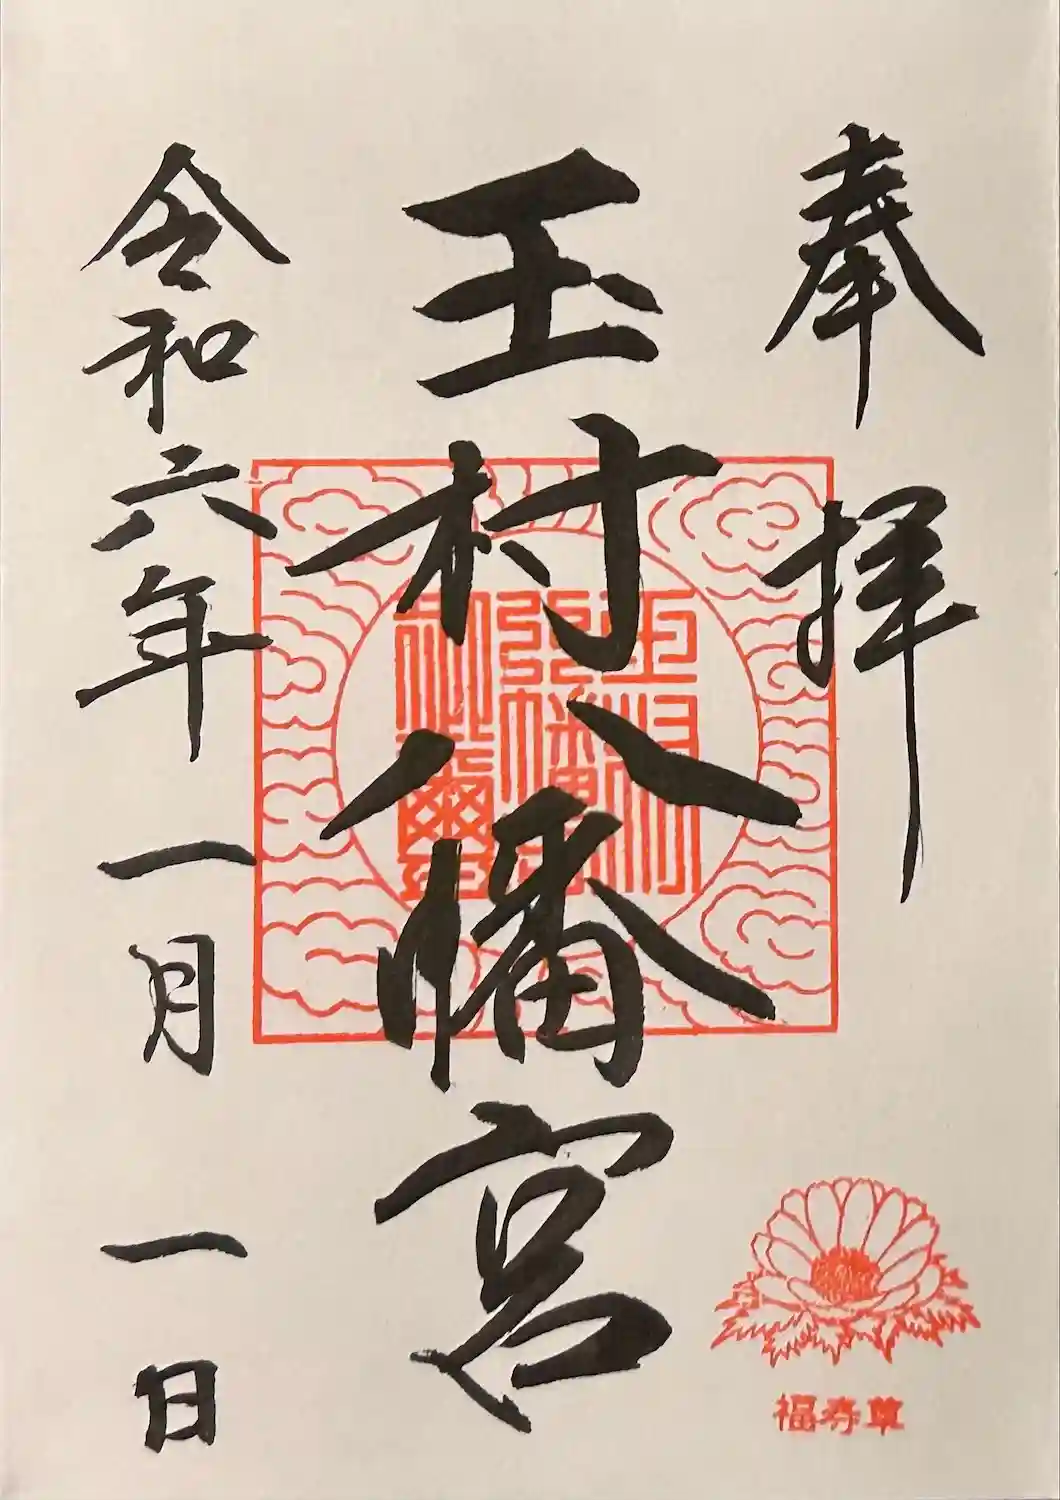 奉拝
玉村八幡宮
令和六年一月一日
福寿草